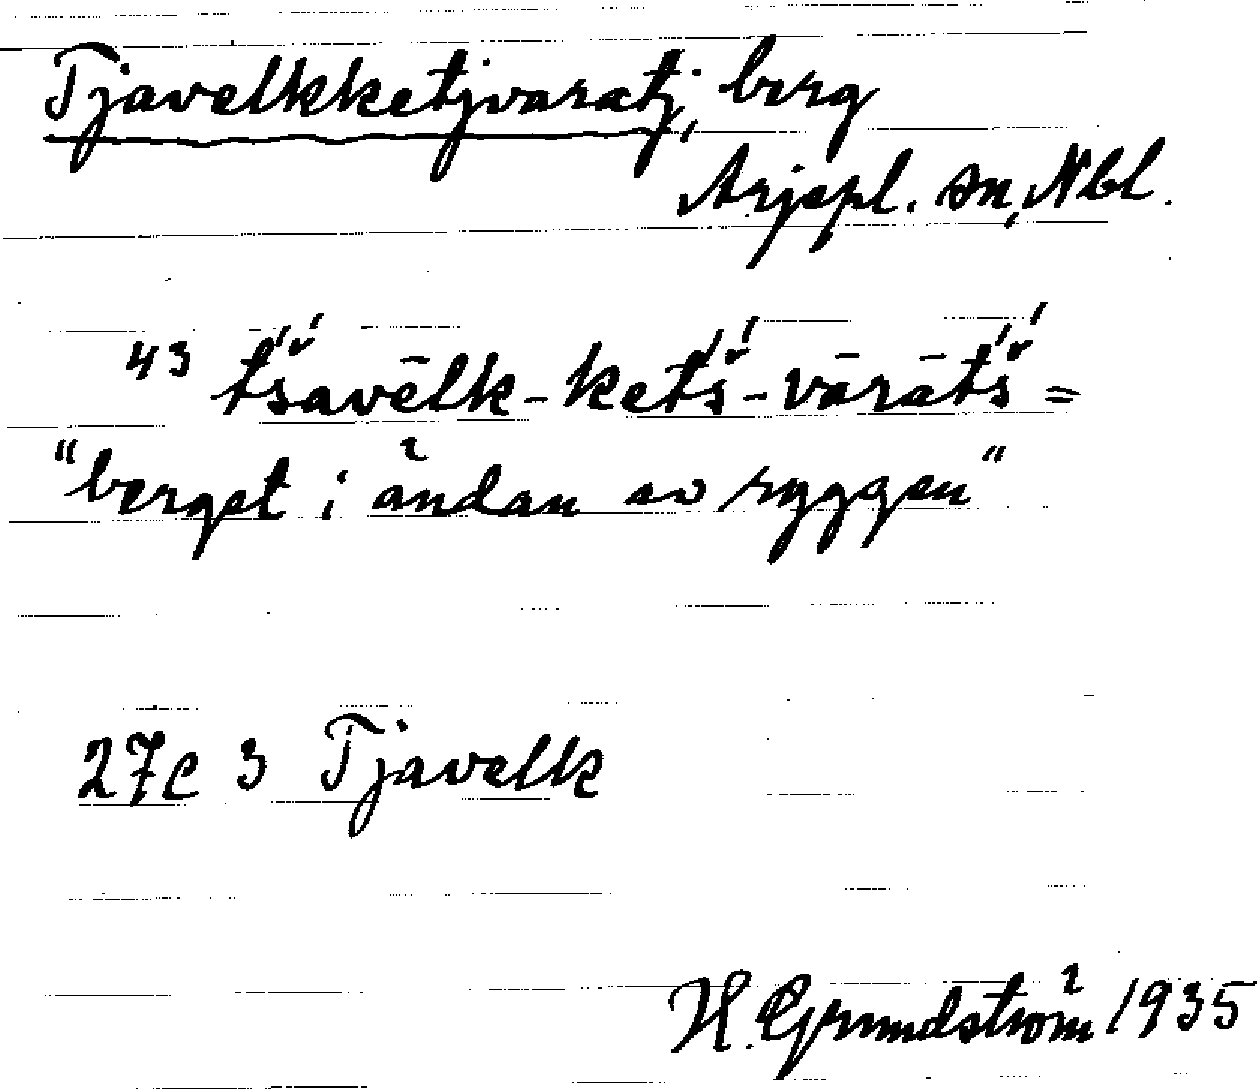 Tjavelkketjvaratj, berg
Arjepl. sn, Nbl.
43 t́šʹavēlk-ket́šʹ-vārāt́šʹ =
"berget i ändan av ryggen"
27c 3 Tjavelk
H. Grundström 1935